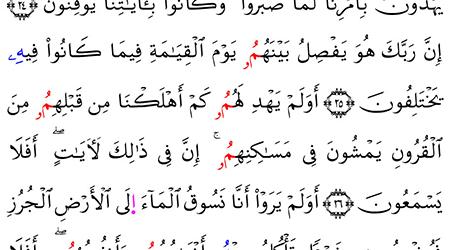 يَهْدُونَ بِأَمْرِنَا لَمَّا صَبَرُوا۟ وَكَانُوا۟ بِـَٔايَٰتِنَا يُوقِنُونَ ﴿٢٤﴾
إِنَّ رَبَّكَ هُوَ يَفْصِلُ بَيْنَهُمُۥ يَوْمَ ٱلْقِيَٰمَةِ فِيمَا كَانُوا۟ فِيهِۦ
يَخْتَلِفُونَ ﴿٢٥﴾ أَوَلَمْ يَهْدِ لَهُمُۥ كَمْ أَهْلَكْنَا مِن قَبْلِهِمُۥ مِنَ
ٱلْقُرُونِ يَمْشُونَ فِى مَسَٰكِنِهِمُۥٓ ۚ إِنَّ فِى ذَٰلِكَ لَأٓيَٰتٍ ۖ أَفَلَا
يَسْمَعُونَ ﴿٢٦﴾ أَوَلَمْ يَرَوْا۟ أَنَّا نَسُوقُ ٱلْمَآءَ إِلَى ٱلْأَرْضِ ٱلْجُرُزِ